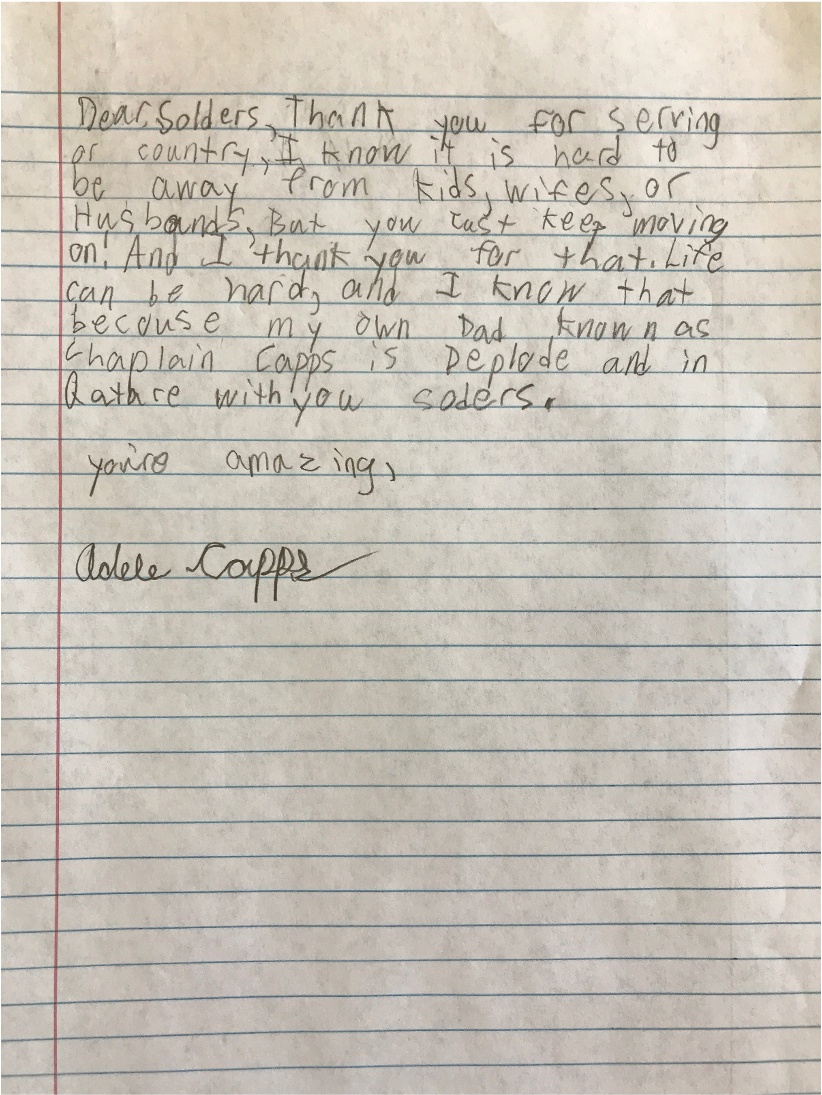 Dear Solders, Thank you for serving
or country, I know it is hard to
be away from kids, wifes, or
Husbands, But you just keep moving
on! And I thank you for that. Life
can be hard, and I know that
becouse my own Dad known as
Chaplain Capps is Deplode and in
Qatare with you soders.
you're amazing,
Adele Capps